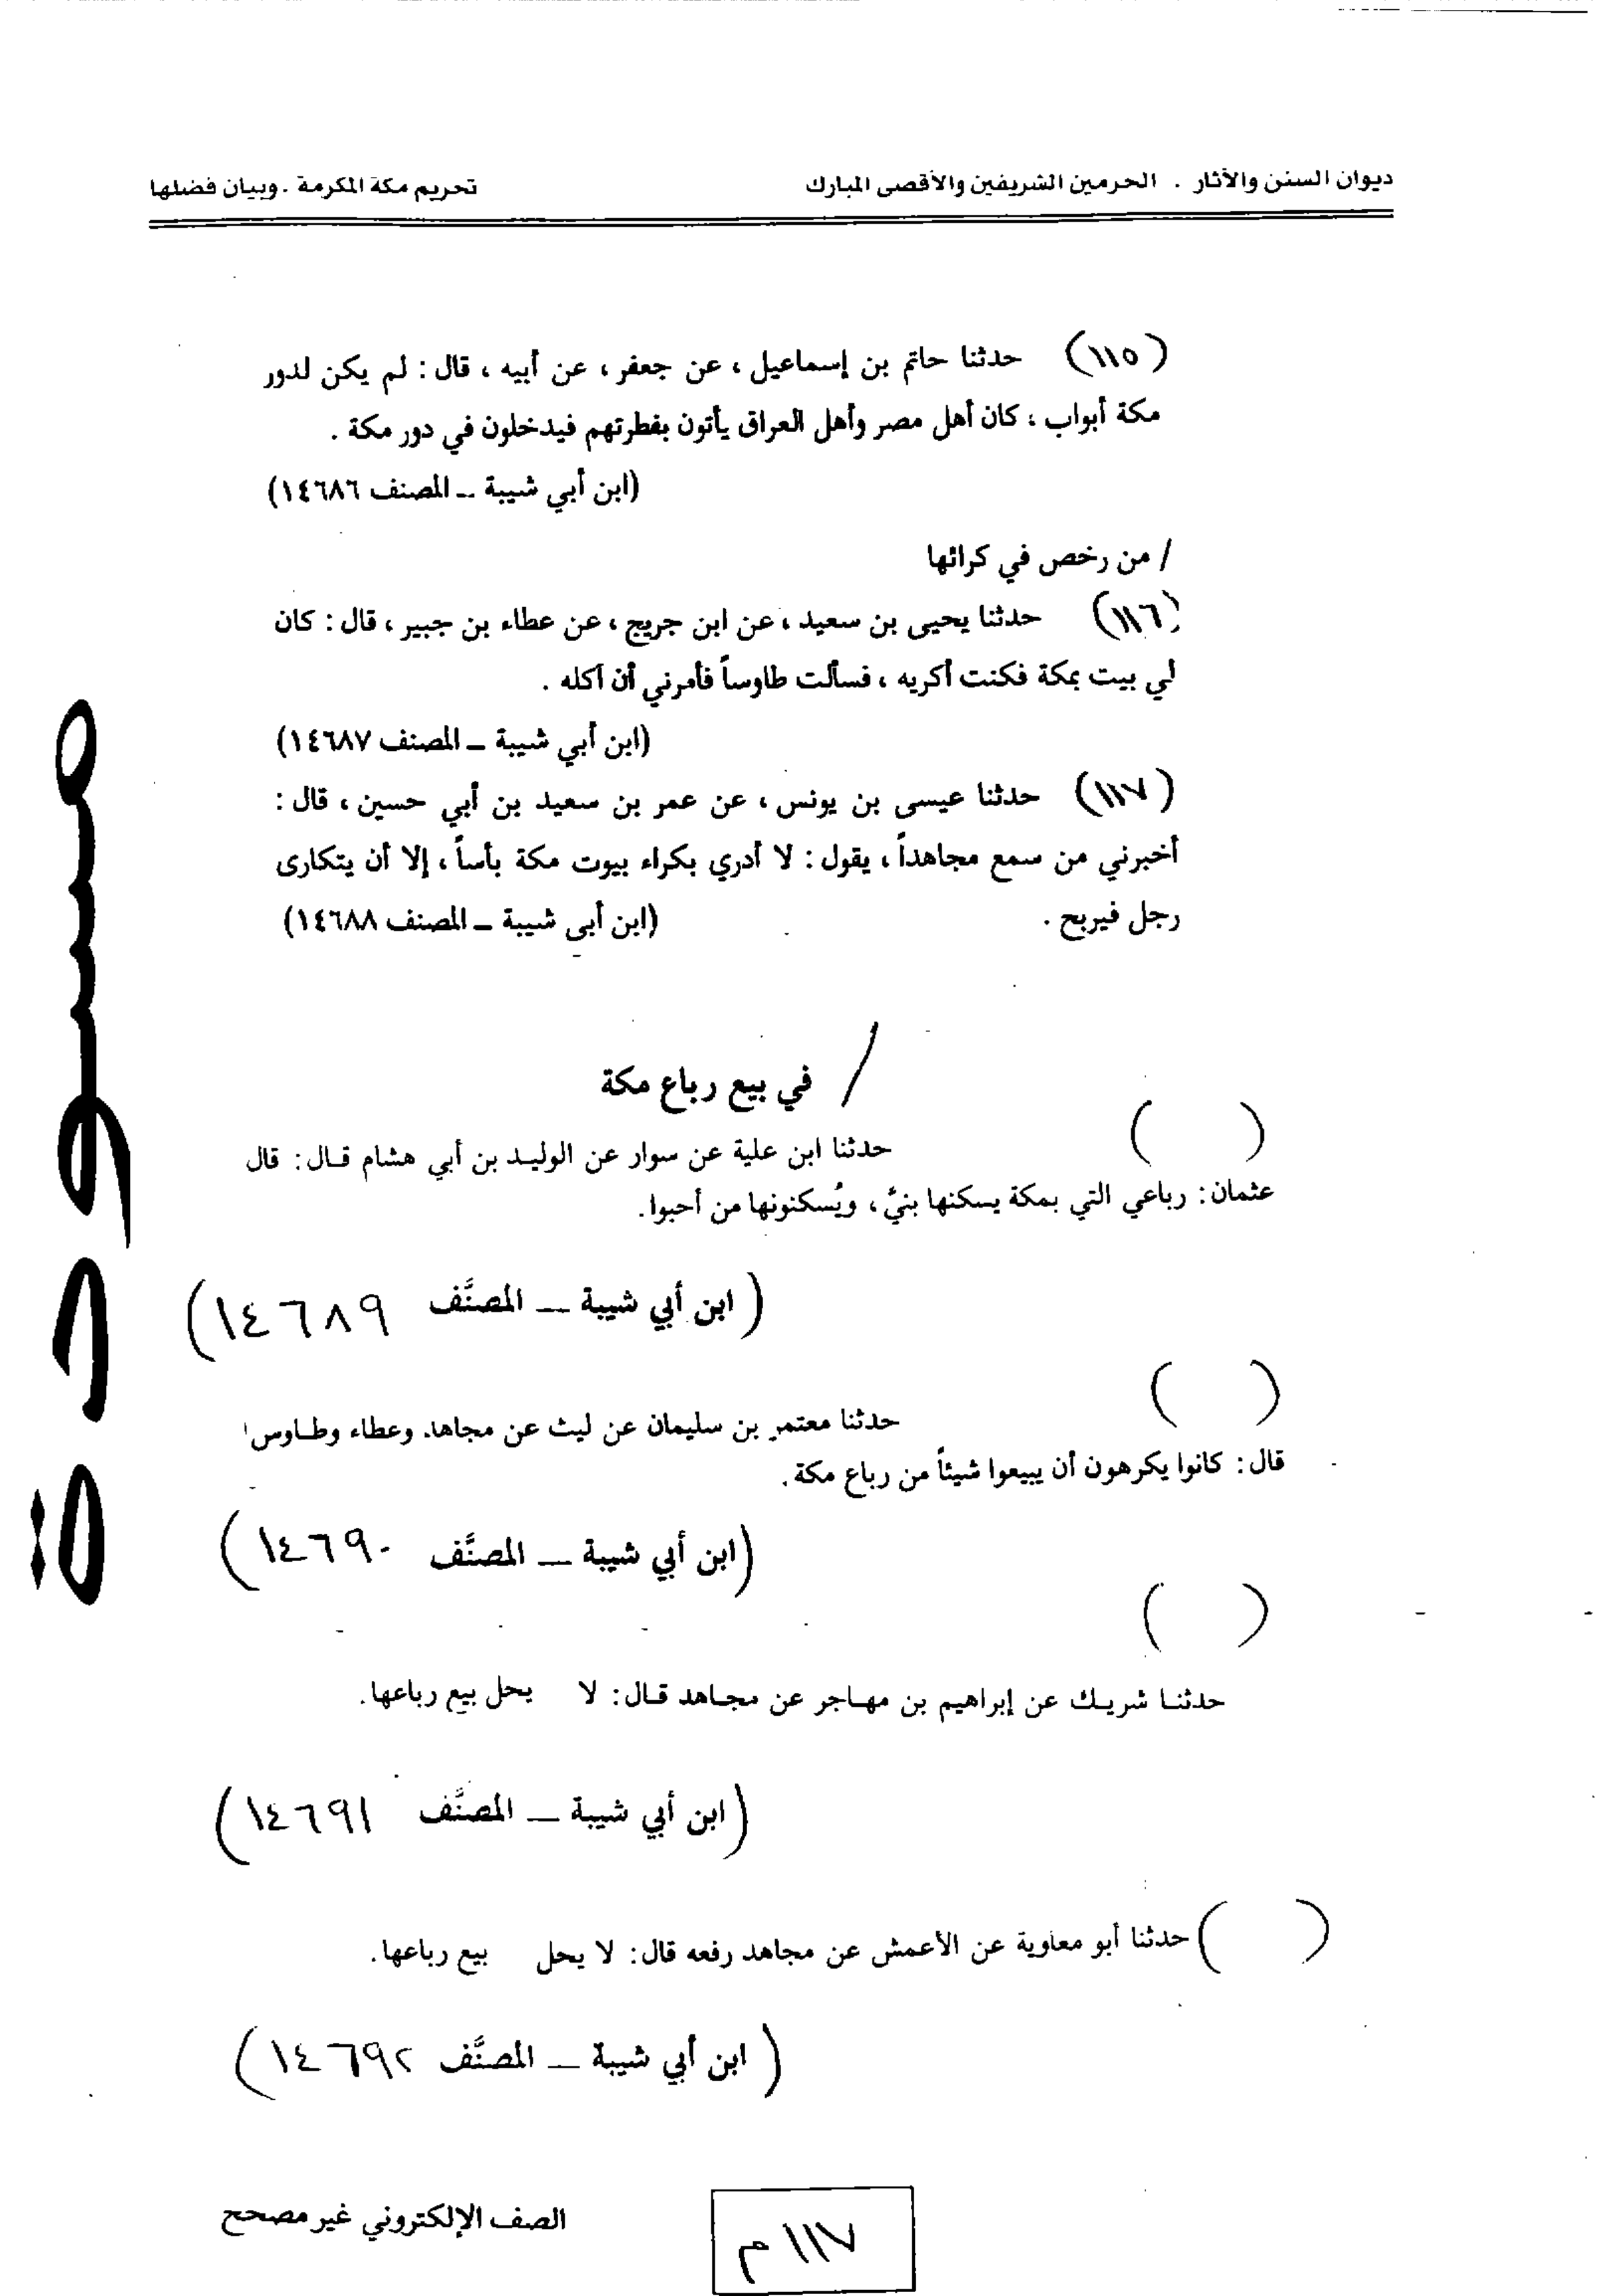 ديوان السنن والآثار . الحرمين الشريفين والأقصى المبارك
تحريم مكة المكرمة . وبيان فضلها
(١١٥) حدثنا حاتم بن إسماعيل ، عن جعفر ، عن أبيه ، قال : لم يكن لدور
مكة أبواب ، كان أهل مصر وأهل العراق يأتون بفطرتهم فيدخلون في دور مكة .
(ابن أبي شيبة ــ المصنف ١٤٦٨٦)
/ من رخص في كرائها
(١١٦) حدثنا يحيى بن سعيد ، عن ابن جريج ، عن عطاء بن جبير ، قال : كان
لي بيت بمكة فكنت أكريه ، فسألت طاوساً فأمرني أن آكله .
(ابن أبي شيبة ــ المصنف ١٤٦٨٧)
(١١٧) حدثنا عيسى بن يونس ، عن عمر بن سعيد بن أبي حسين ، قال :
أخبرني من سمع مجاهداً ، يقول : لا أدري بكراء بيوت مكة بأساً ، إلا أن يتكارى
رجل فيربح . (ابن أبي شيبة ــ المصنف ١٤٦٨٨)
/ في بيع رباع مكة
( ) حدثنا ابن علية عن سوار عن الوليـد بن أبي هشام قـال: قال
عثمان: رباعي التي بمكة يسكنها بنيَّ، ويُسكنونها من أحبوا.
(ابن أبي شيبة ــ المصنَّف ١٤٦٨٩)
( ) حدثنا معتمر بن سليمان عن ليث عن مجاهد وعطاء وطـاوس
قال: كانوا يكرهون أن يبيعوا شيئاً من رباع مكة.
(ابن أبي شيبة ــ المصنَّف ١٤٦٩٠)
( )
حدثنـا شريـك عن إبراهيم بن مهـاجر عن مجـاهد قـال: لا يحل بيع رباعها.
(ابن أبي شيبة ــ المصنَّف ١٤٦٩١)
( ) حدثنا أبو معاوية عن الأعمش عن مجاهد رفعه قال: لا يحل بيع رباعها.
(ابن أبي شيبة ــ المصنَّف ١٤٦٩٢)
الصف الإلكتروني غير مصحح
١١٧ م
مسودة